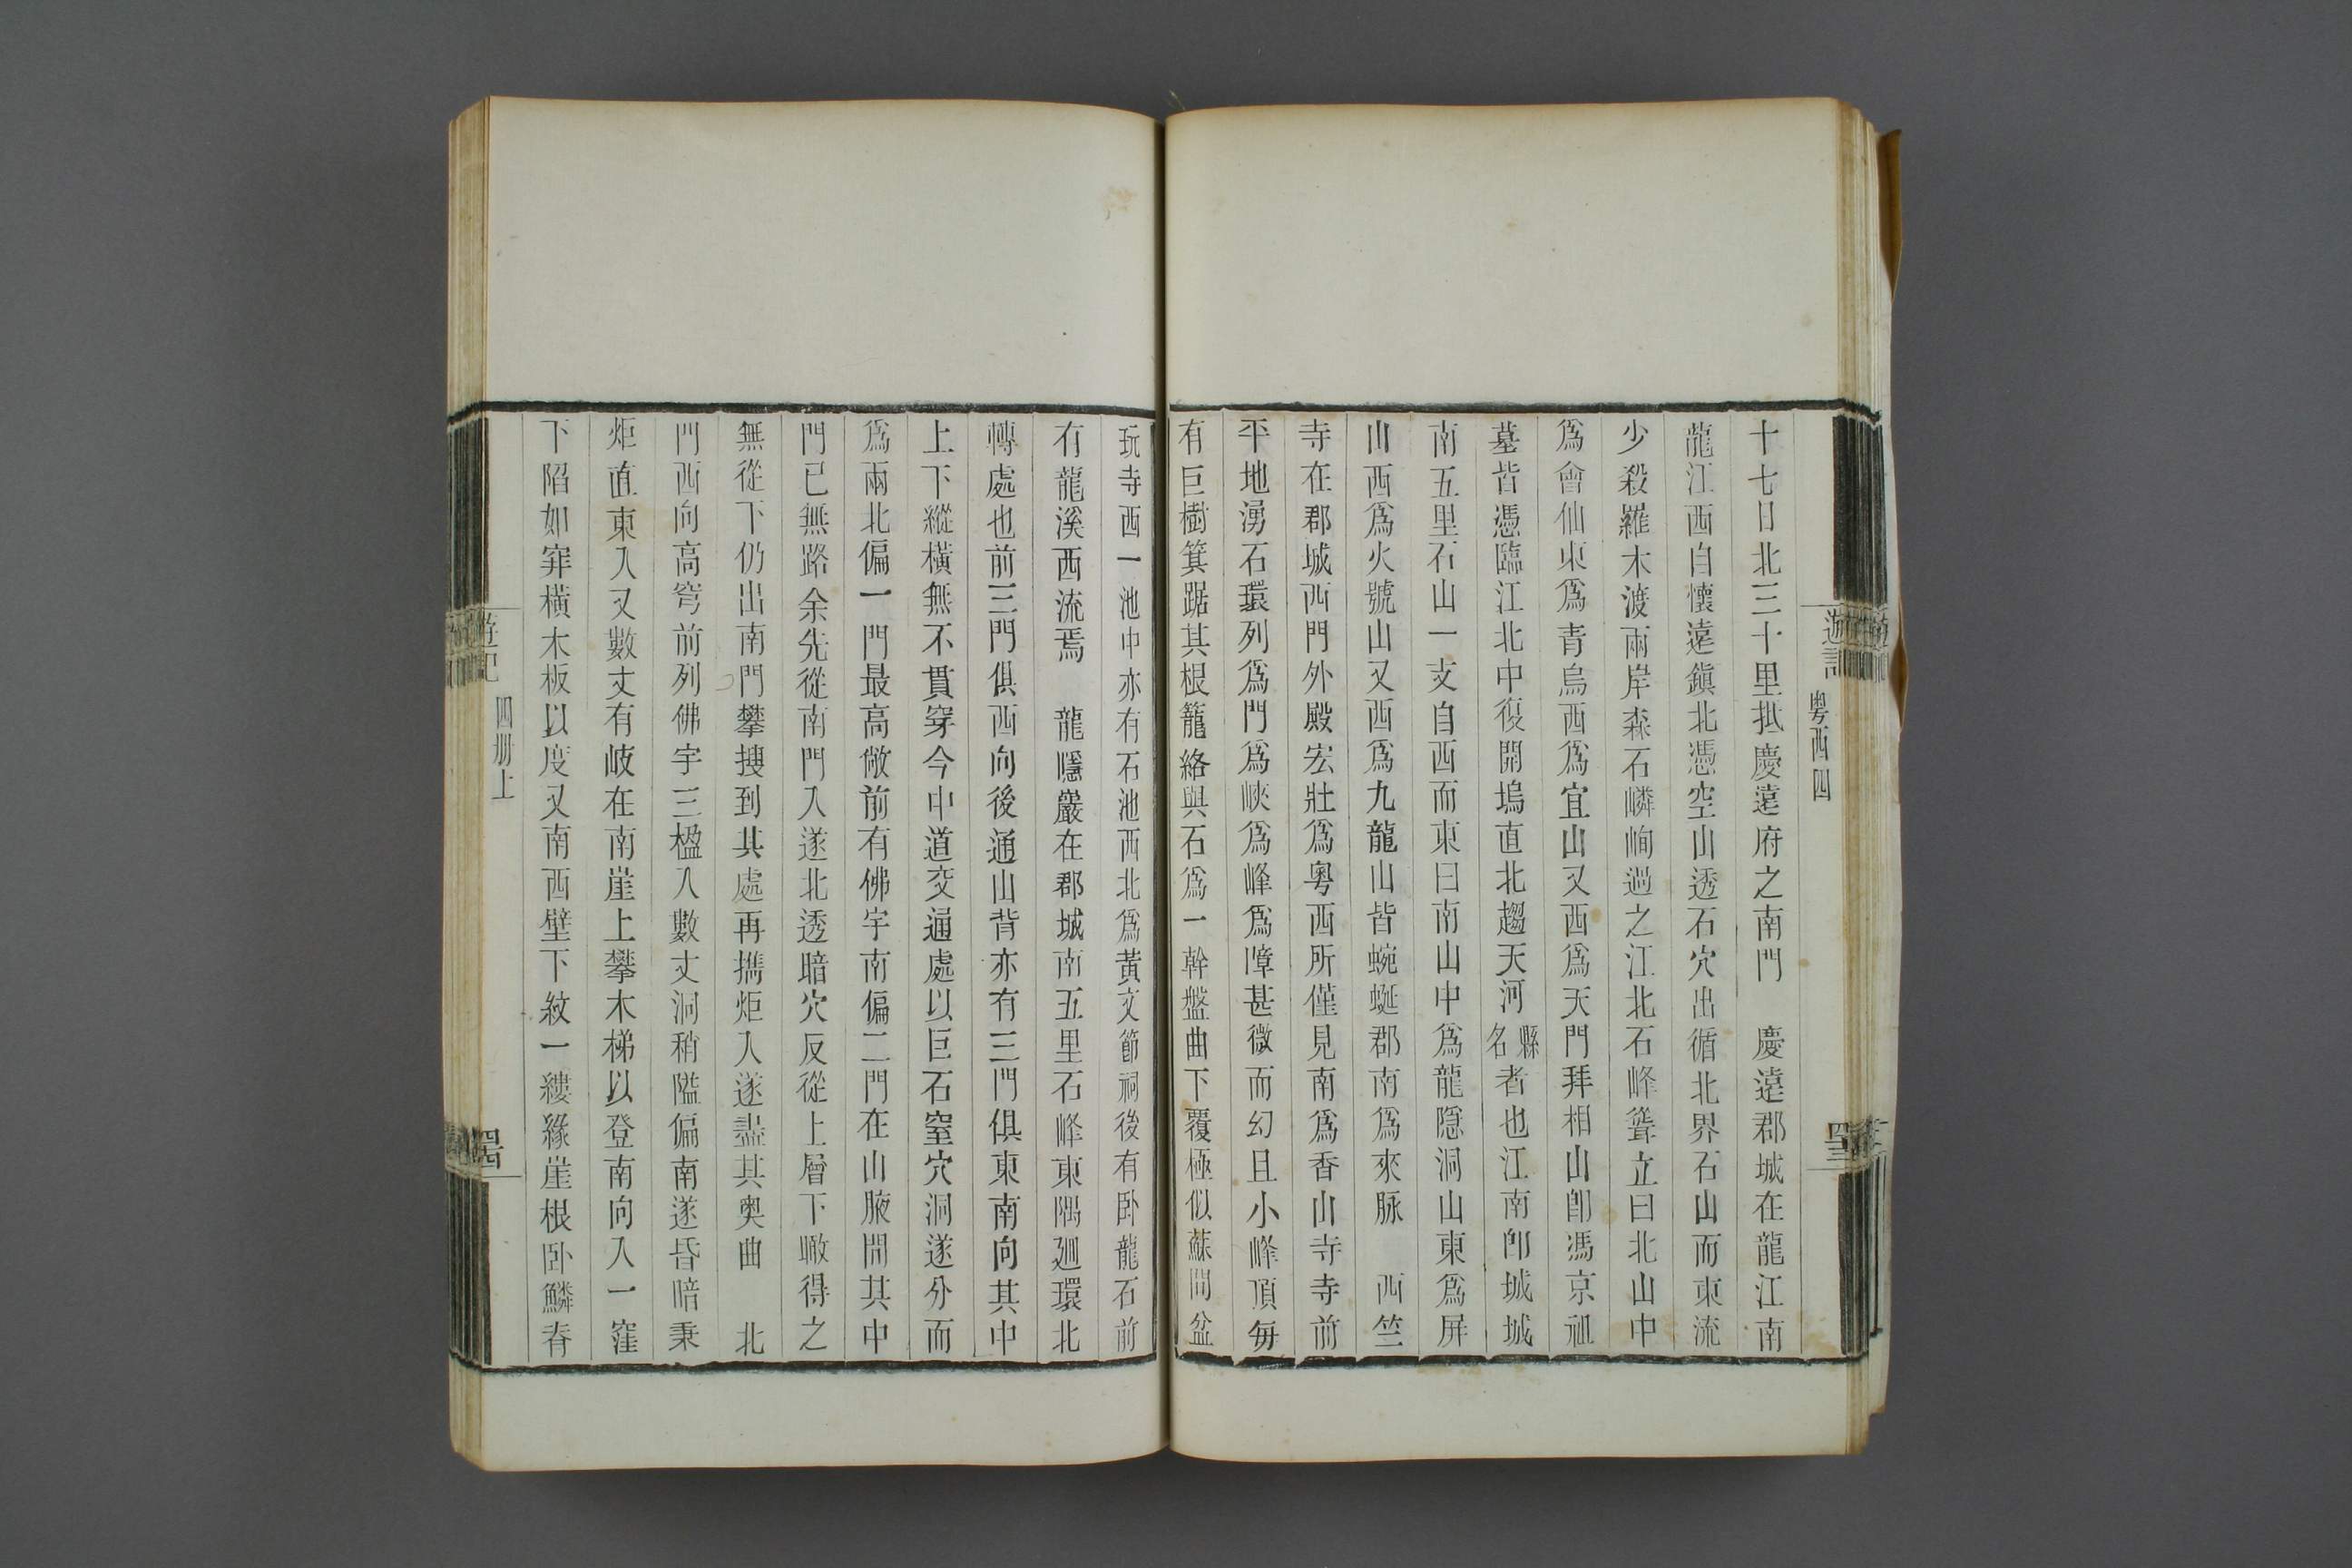 遊記
粵西四
十七日北三十里抵慶遠府之南門　慶遠郡城在龍江南
龍江西自懷遠鎮北憑空山透石穴出循北界石山而東流
少殺羅木渡兩岸森石嶙峋過之江北石峰聳立曰北山中
爲會仙東爲青烏西爲宜山又西爲天門拜相山卽馮京祖
墓皆憑臨江北中復開塢直北趨天河縣名者也江南卽城城
南五里石山一支自西而東曰南山中爲龍隱洞山東爲屏
山西爲火號山又西爲九龍山皆蜿蜒郡南爲來脉　西竺
寺在郡城西門外殿宏壯爲粵西所僅見南爲香山寺寺前
平地湧石環列爲門爲峽爲峰爲嶂甚微而幻且小峰頂每
有巨樹箕踞其根籠絡與石爲一幹盤曲下覆極似蘇閶盆
玩寺西一池中亦有石池西北爲黃文節祠後有卧龍石前
有龍溪西流焉　龍隱巖在郡城南五里石峰東隅廻環北
轉處也前三門俱西向後通山背亦有三門俱東南向其中
上下縱橫無不貫穿今中道交通處以巨石窒穴洞遂分而
爲兩北偏一門最高敞前有佛宇南偏二門在山腋間其中
門已無路余先從南門入遂北透暗穴反從上層下瞰得之
無從下仍出南門攀搜到其處再攜炬入遂盡其奧曲　北
門西向高穹前列佛宇三楹入數丈洞稍隘偏南遂昏暗秉
炬直東入又數丈有岐在南崖上攀木梯以登南向入一窪
下陷如穽橫木板以度又南西壁下紋一縷緣崖根卧鱗脊
遊記
四册上